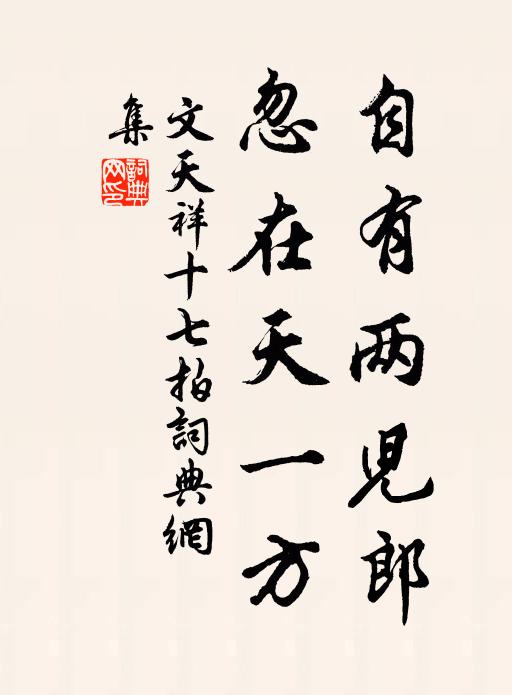 自有两児郎
忽在天一方
文天祥十七拍詞典網
集
詞典
网印